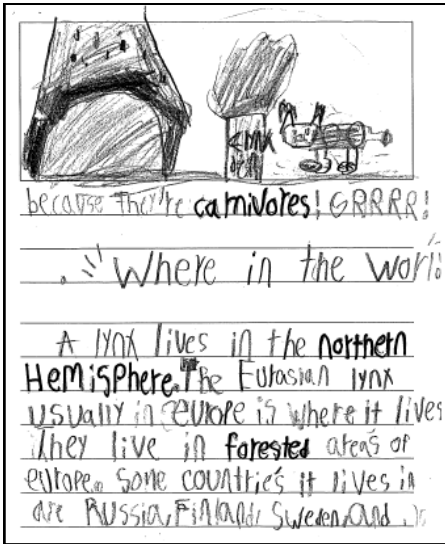 LYNX
den
because they're carnivores! GRRRR!
Where in the worl
A lynx lives in the northern
Hemisphere. The Eurasian lynx
usually in europe is where it lives
They live in forested areas of
europe. Some countries it lives in
are Russia, Finland, Sweden, and